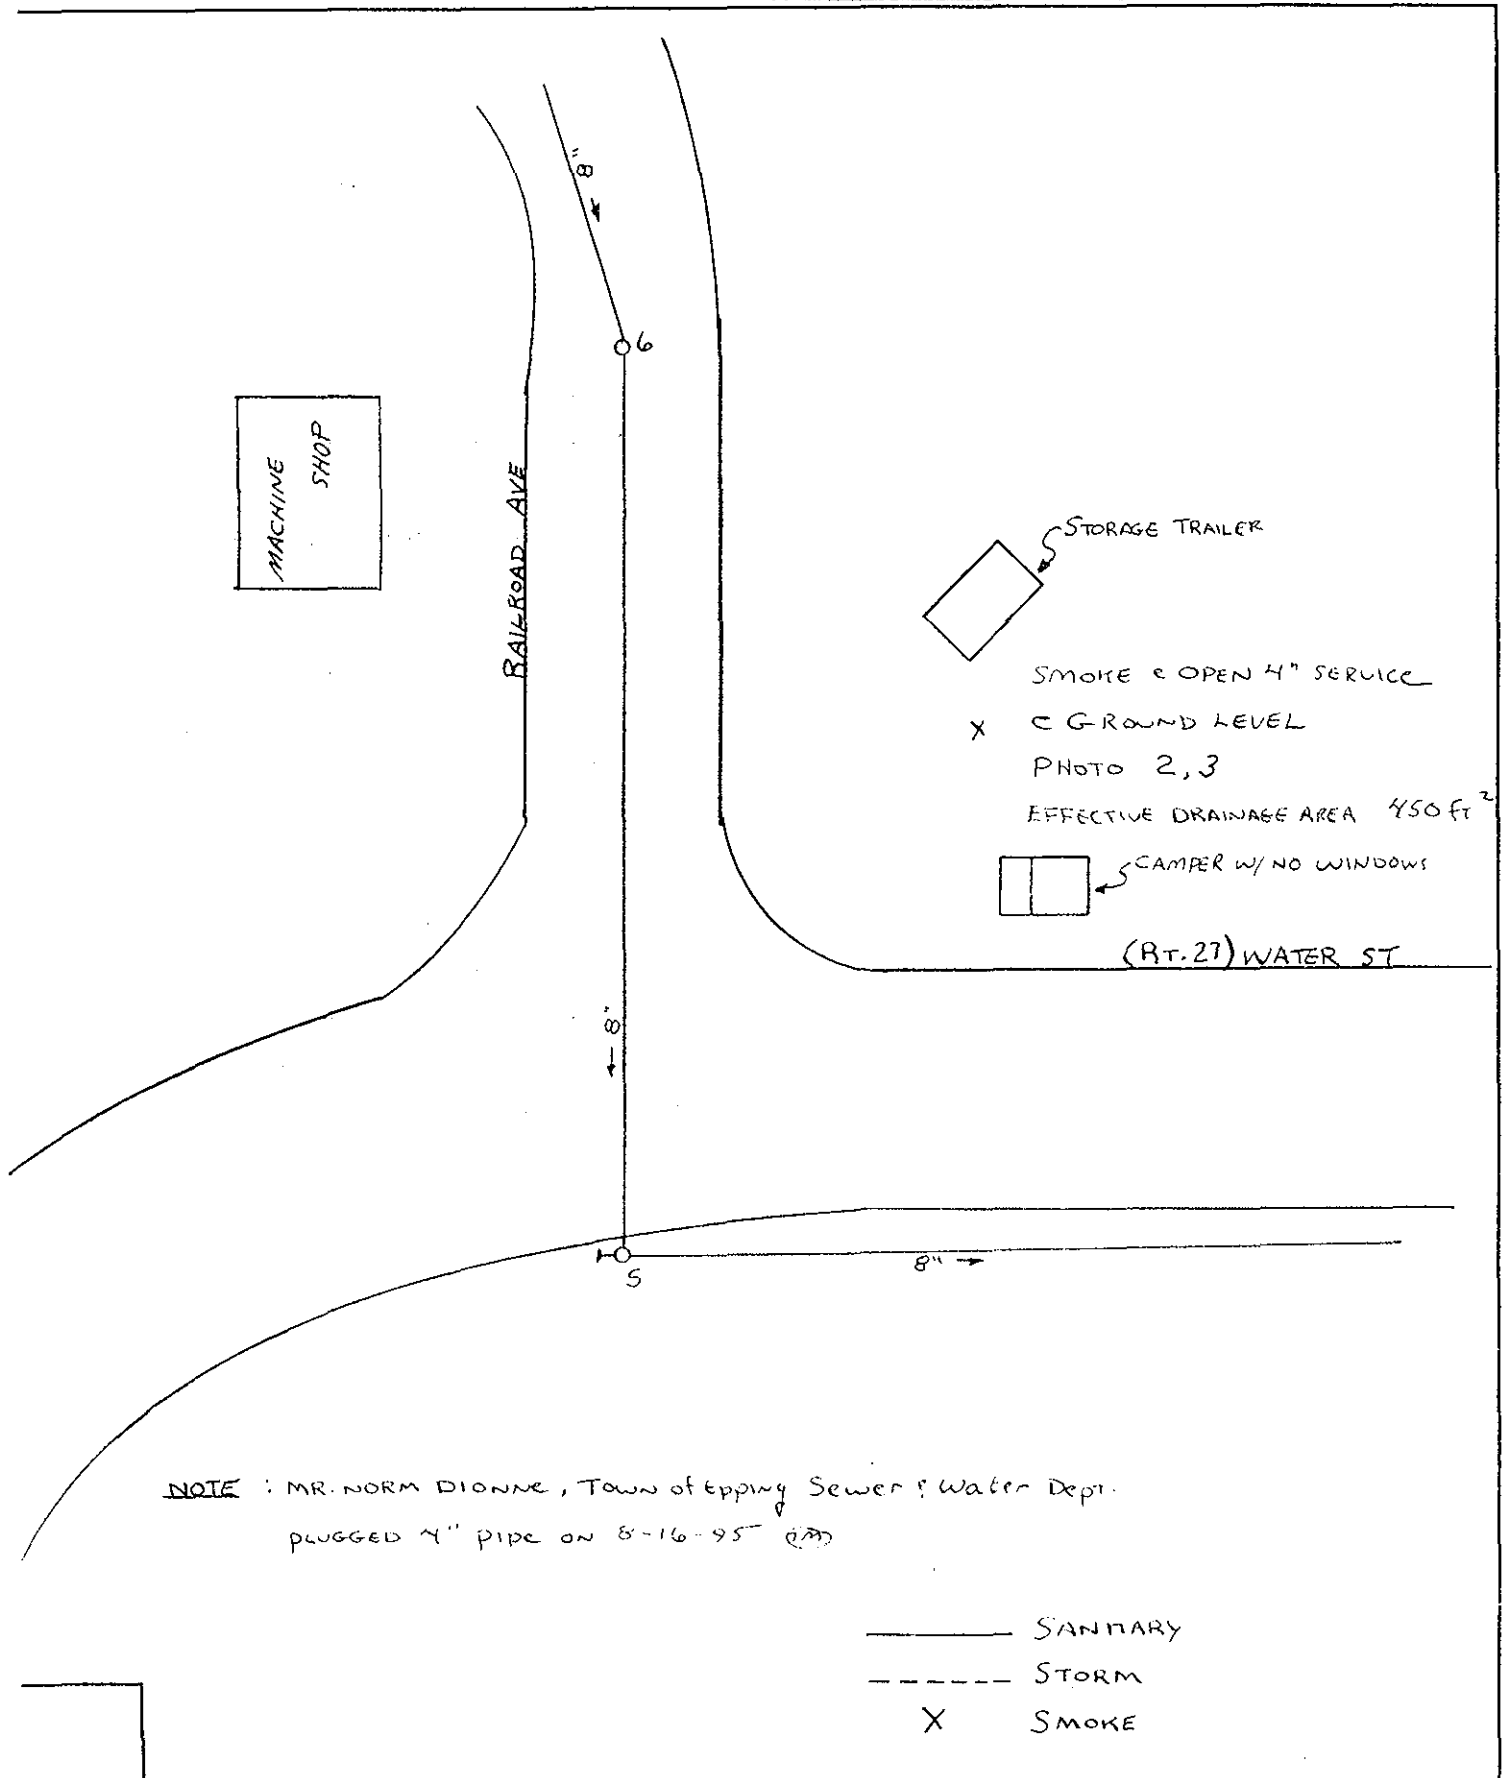 8"
6
MACHINE
SHOP
RAILROAD AVE
STORAGE TRAILER
SMOKE @ OPEN 4" SERVICE
X @ GROUND LEVEL
PHOTO 2,3
EFFECTIVE DRAINAGE AREA 450 ft²
CAMPER W/ NO WINDOWS
(RT.27) WATER ST
8"
5
8"
NOTE : MR. NORM DIONNE, TOWN of Epping Sewer & Water Dept.
PLUGGED 4" pipe ON 8-16-95
SANITARY
STORM
X SMOKE